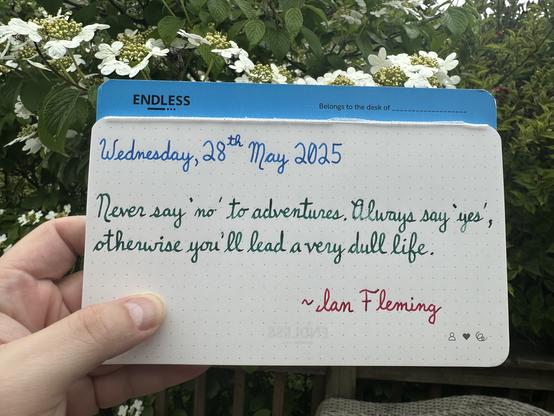 ENDLESS
Belongs to the desk of
Wednesday, 28th May 2025
Never say 'no' to adventures. Always say 'yes',
otherwise you'll lead a very dull life.
~Ian Fleming
ENDLESS